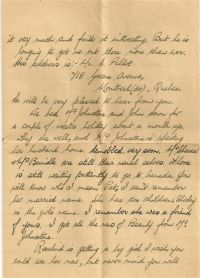 it very much and finds it interesting. But he is
longing to get us out there more than ever.
His address is:- Mr. G. Pellet
718 Greene Avenue,
Montreal (30), Quebec
He will be very pleased to hear from you.
We had Mrs Johnstone and John down for
a couple of weeks holiday about a month ago
they are well, and Mrs Johnstone is expecting
her husband home demobbed very soon. Mrs
Mrs Brindle are still their usual selves.
is still waiting patiently to go to Canada. You
will know who I mean Pat, I can't remember
her married name. She has two children, Shirley
is the girls name. I remember she was a friend
of yours. I get all the news of Beauty from Mrs
Johnstone.
Rosalind is getting a big girl I wish you
could see her now, but never mind you will